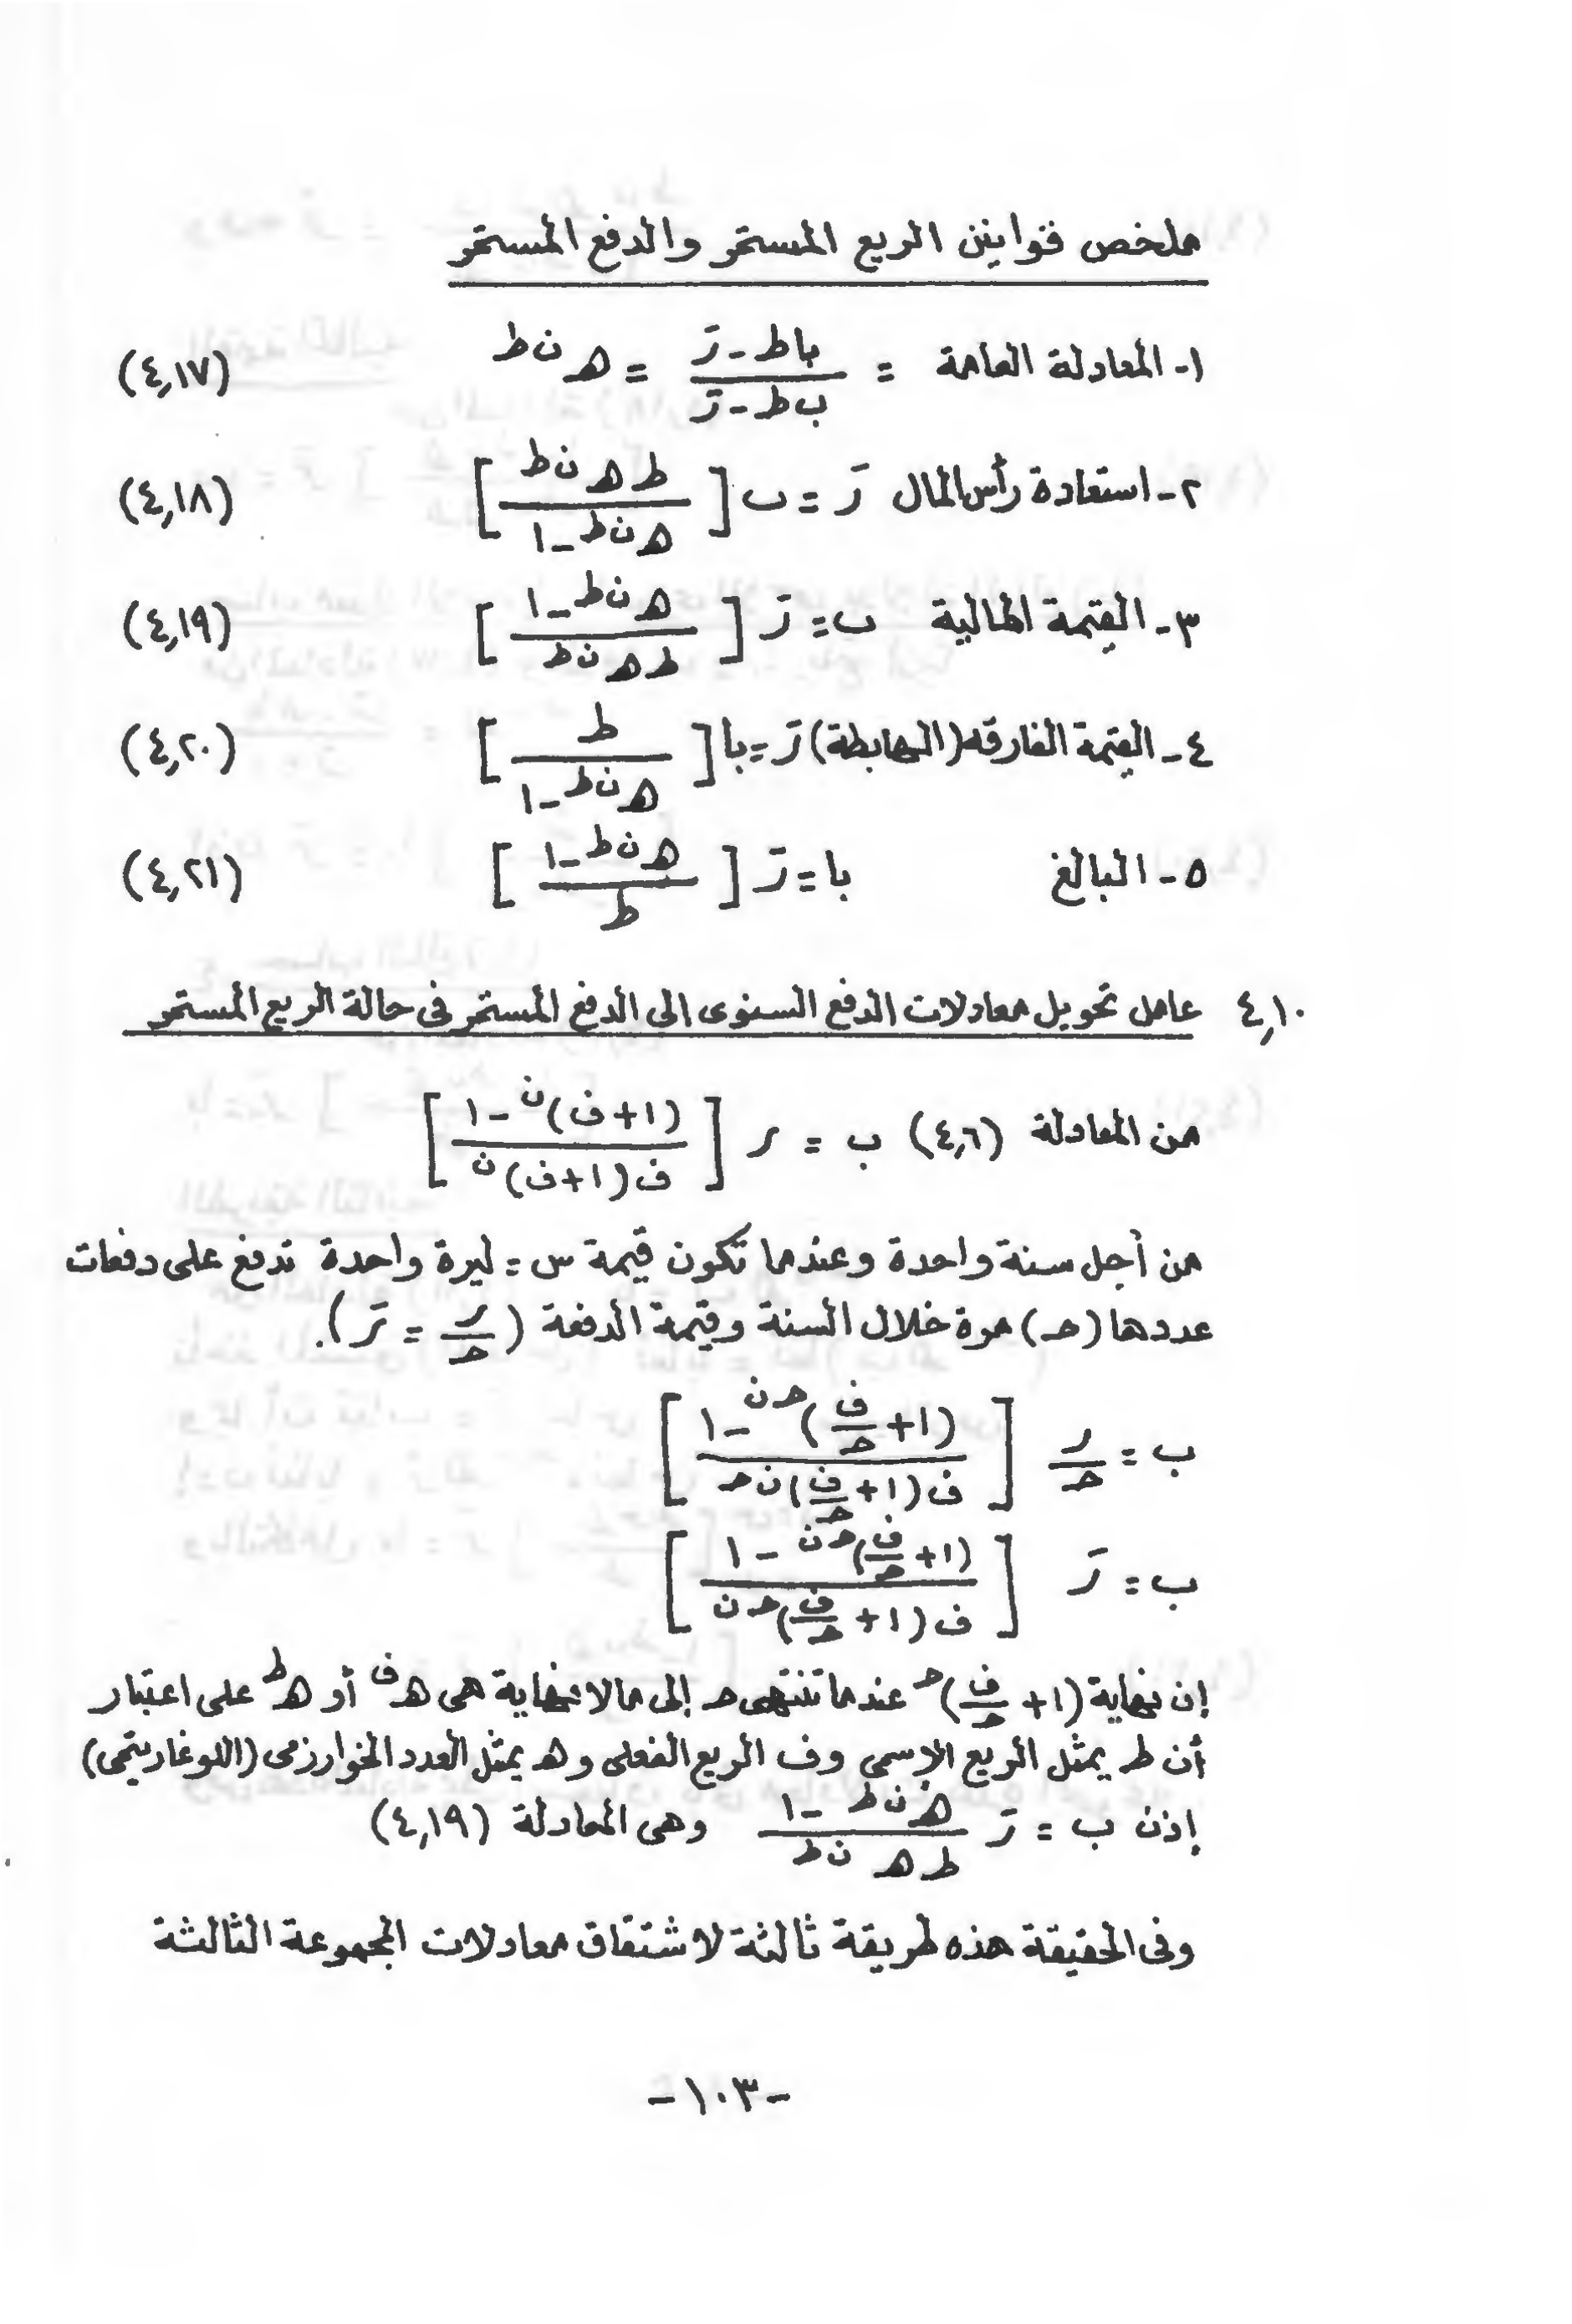 ملخص قوانين الريع المستمر والدفع المستمر
١- المعادلة العامة = (باط - رَ) / (ب ط - رَ) = هـ^(ن ط) (٤,١٧)
٢- استعادة رأس المال رَ = ب [ (ط هـ^(ن ط)) / (هـ^(ن ط) - ١) ] (٤,١٨)
٣- القيمة الحالية ب = رَ [ (هـ^(ن ط) - ١) / (ط هـ^(ن ط)) ] (٤,١٩)
٤- القيمة الفارقه (الهابطة) رَ = با [ ط / (هـ^(ن ط) - ١) ] (٤,٢٠)
٥- البالغ با = رَ [ (هـ^(ن ط) - ١) / ط ] (٤,٢١)
٤,١٠ عامل تحويل معادلات الدفع السنوى الى الدفع المستمر فى حالة الريع المستمر
من المعادلة (٤,٦) ب = ر [ ((١+ف)^ن - ١) / (ف (١+ف)^ن) ]
من أجل سنة واحدة وعندما تكون قيمة س = ليرة واحدة تدفع على دفعات
عددها (حـ) مرة خلال السنة وقيمة الدفعة (ر/حـ = رَ).
ب = ر/حـ [ ((١+ ف/حـ)^(حـ ن) - ١) / (ف (١+ ف/حـ)^(ن حـ)) ]
ب = رَ [ ((١+ ف/حـ)^(حـ ن) - ١) / (ف (١+ ف/حـ)^(حـ ن)) ]
إن نهاية (١+ ف/حـ)^حـ عندما تنتهى حـ إلى مالا نهاية هى هـ^ف أو هـ^ط على اعتبار
أن ط يمثل الريع الإسمى وف الريع الفعلى وهـ يمثل العدد الخوارزمى (اللوغاريتمى)
إذن ب = رَ (هـ^(ن ط) - ١) / (ط هـ^(ن ط)) وهى المعادلة (٤,١٩)
وفى الحقيقة هذه طريقة ثالثة لاشتقاق معادلات المجموعة الثالثة
-١٠٣-